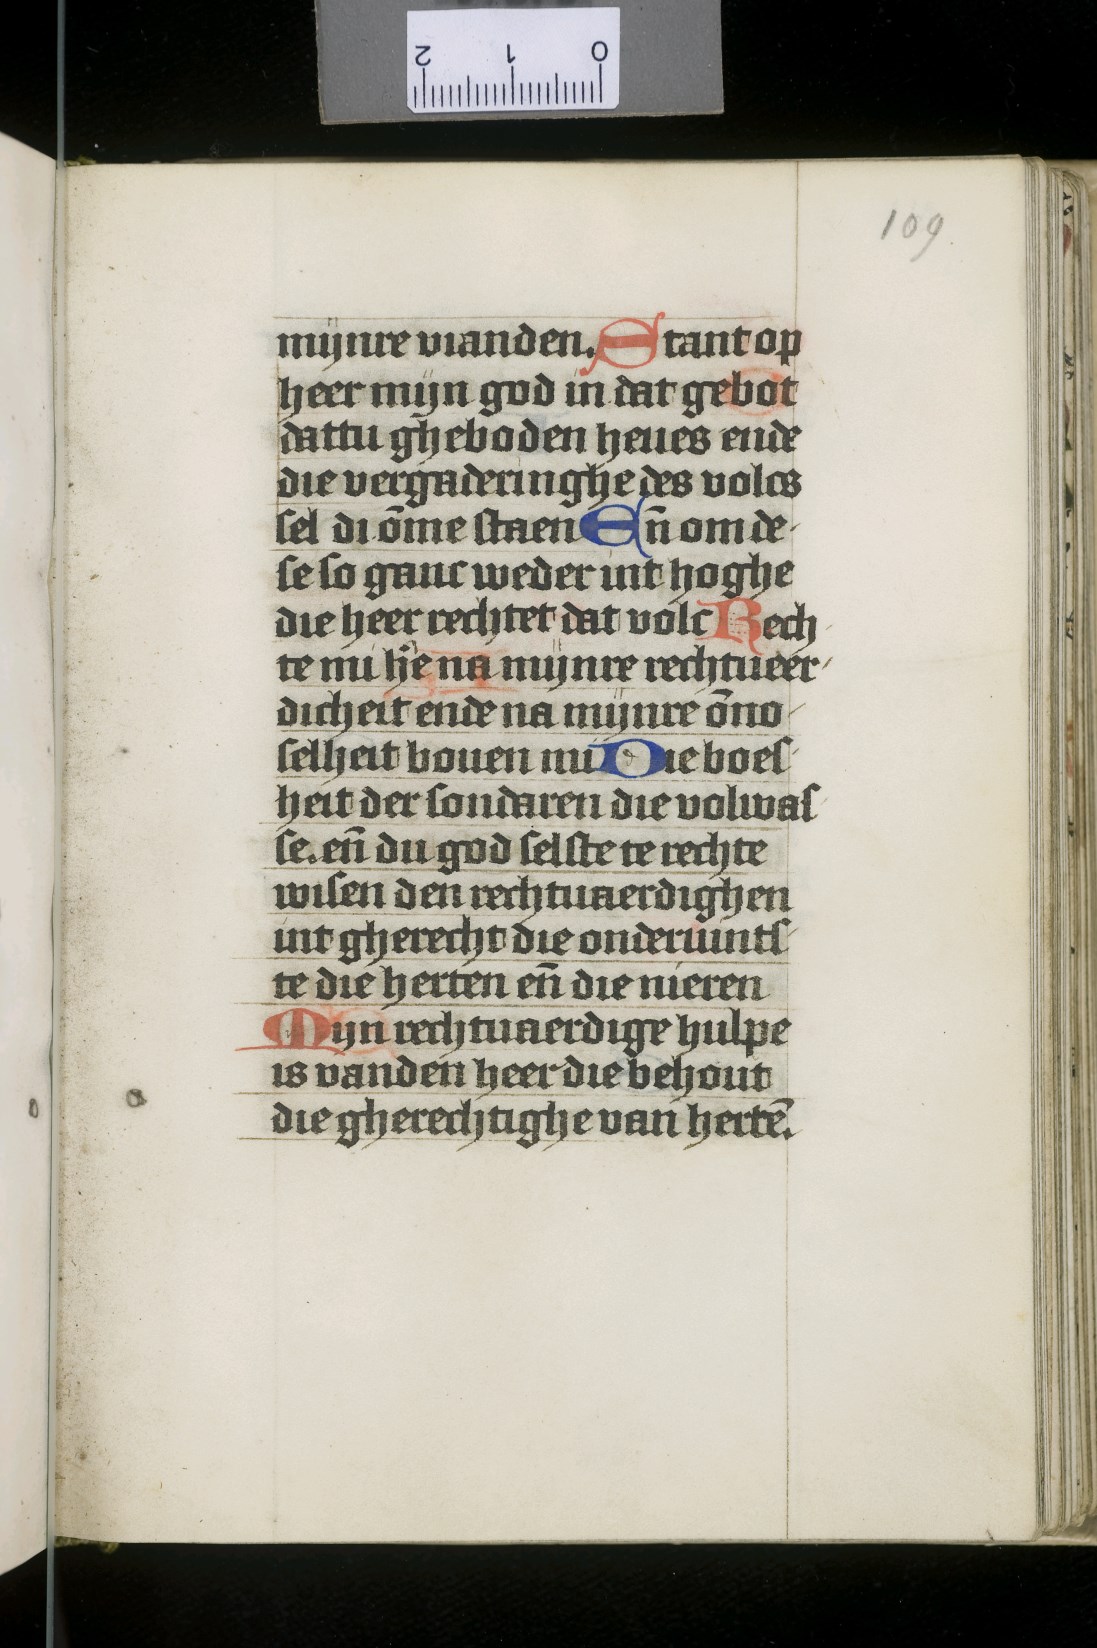 109
mijnre vianden. Stant op
heer mijn god in dat gebot
dattu gheboden heues ende
die vergaderinghe des volcs
sel di ōme staen Eñ om de-
se so ganc weder int hoghe
die heer rechtet dat volc Rech-
te mi h̄e na mijnre rechtueer-
dicheit ende na mijnre ōno-
selheit bouen mi Die boes-
heit der sondaren die volwas-
se. eñ du god selste te rechte
wisen den rechtuaerdighen
int gherecht die onderuints-
te die herten eñ die nieren
Mijn rechtuaerdige hulpe
is vanden heer die behout
die gherechtighe van hertē.